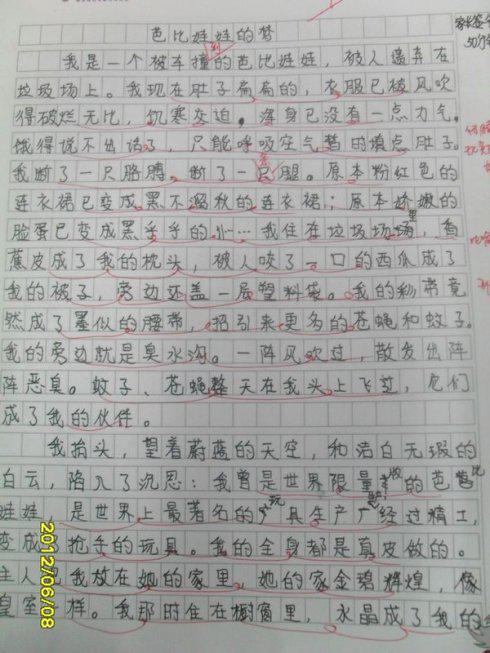 芭比娃娃的梦
我是一个被车撞到的芭比娃娃，被人遗弃在
垃圾场上。我现在肚子扁扁的，衣服已被风吹
得破烂无比，饥寒交迫。浑身已没有一点力气。
饿得说不出话了，只能呼吸空气暂时填点肚子。
我断了一只胳膊，断了一条腿。原本粉红色的
连衣裙已变成黑不溜秋的连衣裙；原本娇嫩的
脸蛋已变成黑乎乎的……我住在垃圾场里，香
蕉皮成了我的枕头，被人咬了一口的西瓜成了
我的被子，旁边还盖一层塑料袋。我的彩带竟
然成了墨似的腰带，招引来更多的苍蝇和蚊子。
我的旁边就是臭水沟。一阵风吹过，散发出阵
阵恶臭。蚊子、苍蝇整天在我头上飞过，它们
成了我的伙伴。
我抬头，望着蔚蓝的天空，和洁白无瑕的
白云，陷入了沉思：我曾是世界限量版的芭比
娃娃，是世界上最著名的玩具生产厂经过精工，
变成抢手的玩具。我的全身都是真皮做的。
主人把我放在她的家里，她的家金碧辉煌，像
皇室一样。我那时住在橱窗里，水晶成了我的
家长签
50分
2012/06/08